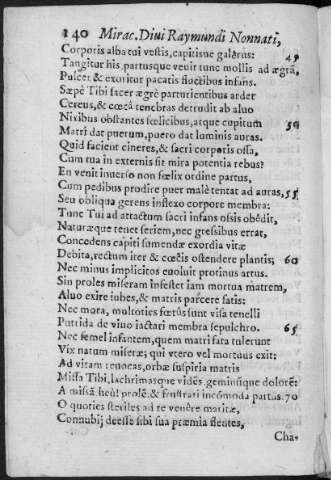 140 Mirac. Diui Raymundi Nonnati,
Corporis alba tui vestis, capitisue galerus: 45
Tangitur his, partusque venit tunc mollis ad ægrā,
Pulcer, & exoritur pacatis fluctibus infans.
Sæpè Tibi facer ægrè parturientibus ardet
Cereus, & cœcâ tenebras detrudit ab aluo
Nixibus obstantes fœlicibus, atque cupitum 50
Matri dat puerum, puero dat luminis auras.
Quid facient cineres, & sacri corporis ossa,
Cum tua in externis sit mira potentia rebus?
En venit inuerso non fœlix ordine partus,
Cum pedibus prodire puer malè tentat ad auras, 55
Seu obliqua gerens inflexo corpore membra:
Tunc Tui ad attactum sacri infans ossis obêdit,
Naturæque tenet seriem, nec gressibus errat,
Concedens capiti sumendæ exordia vitæ
Debita, rectum iter & cœlis ostendere plantis; 60
Nec minus implicitos euoluit protinus artus.
Sin proles miseram infestet iam mortua matrem,
Aluo exire iubes, & matris parcere fatis:
Nec mora, multoties fœtus sunt visa tenelli
Putrida de viuo iactari membra sepulchro. 65
Nec semel infantem, quem matri fata tulerunt
Vix natum miseræ; qui vtero vel mortuus exit:
Ad vitam reuocas, orbæ suspiria matris
Missa Tibi, lachrimasque vidēs, geminūque dolorē:
A missā heù! prolē, & frustrari incómoda partus. 70
O quoties steriles ad te venêre maritæ,
Connubij deesse sibi sua præmia flentes,
Cha-